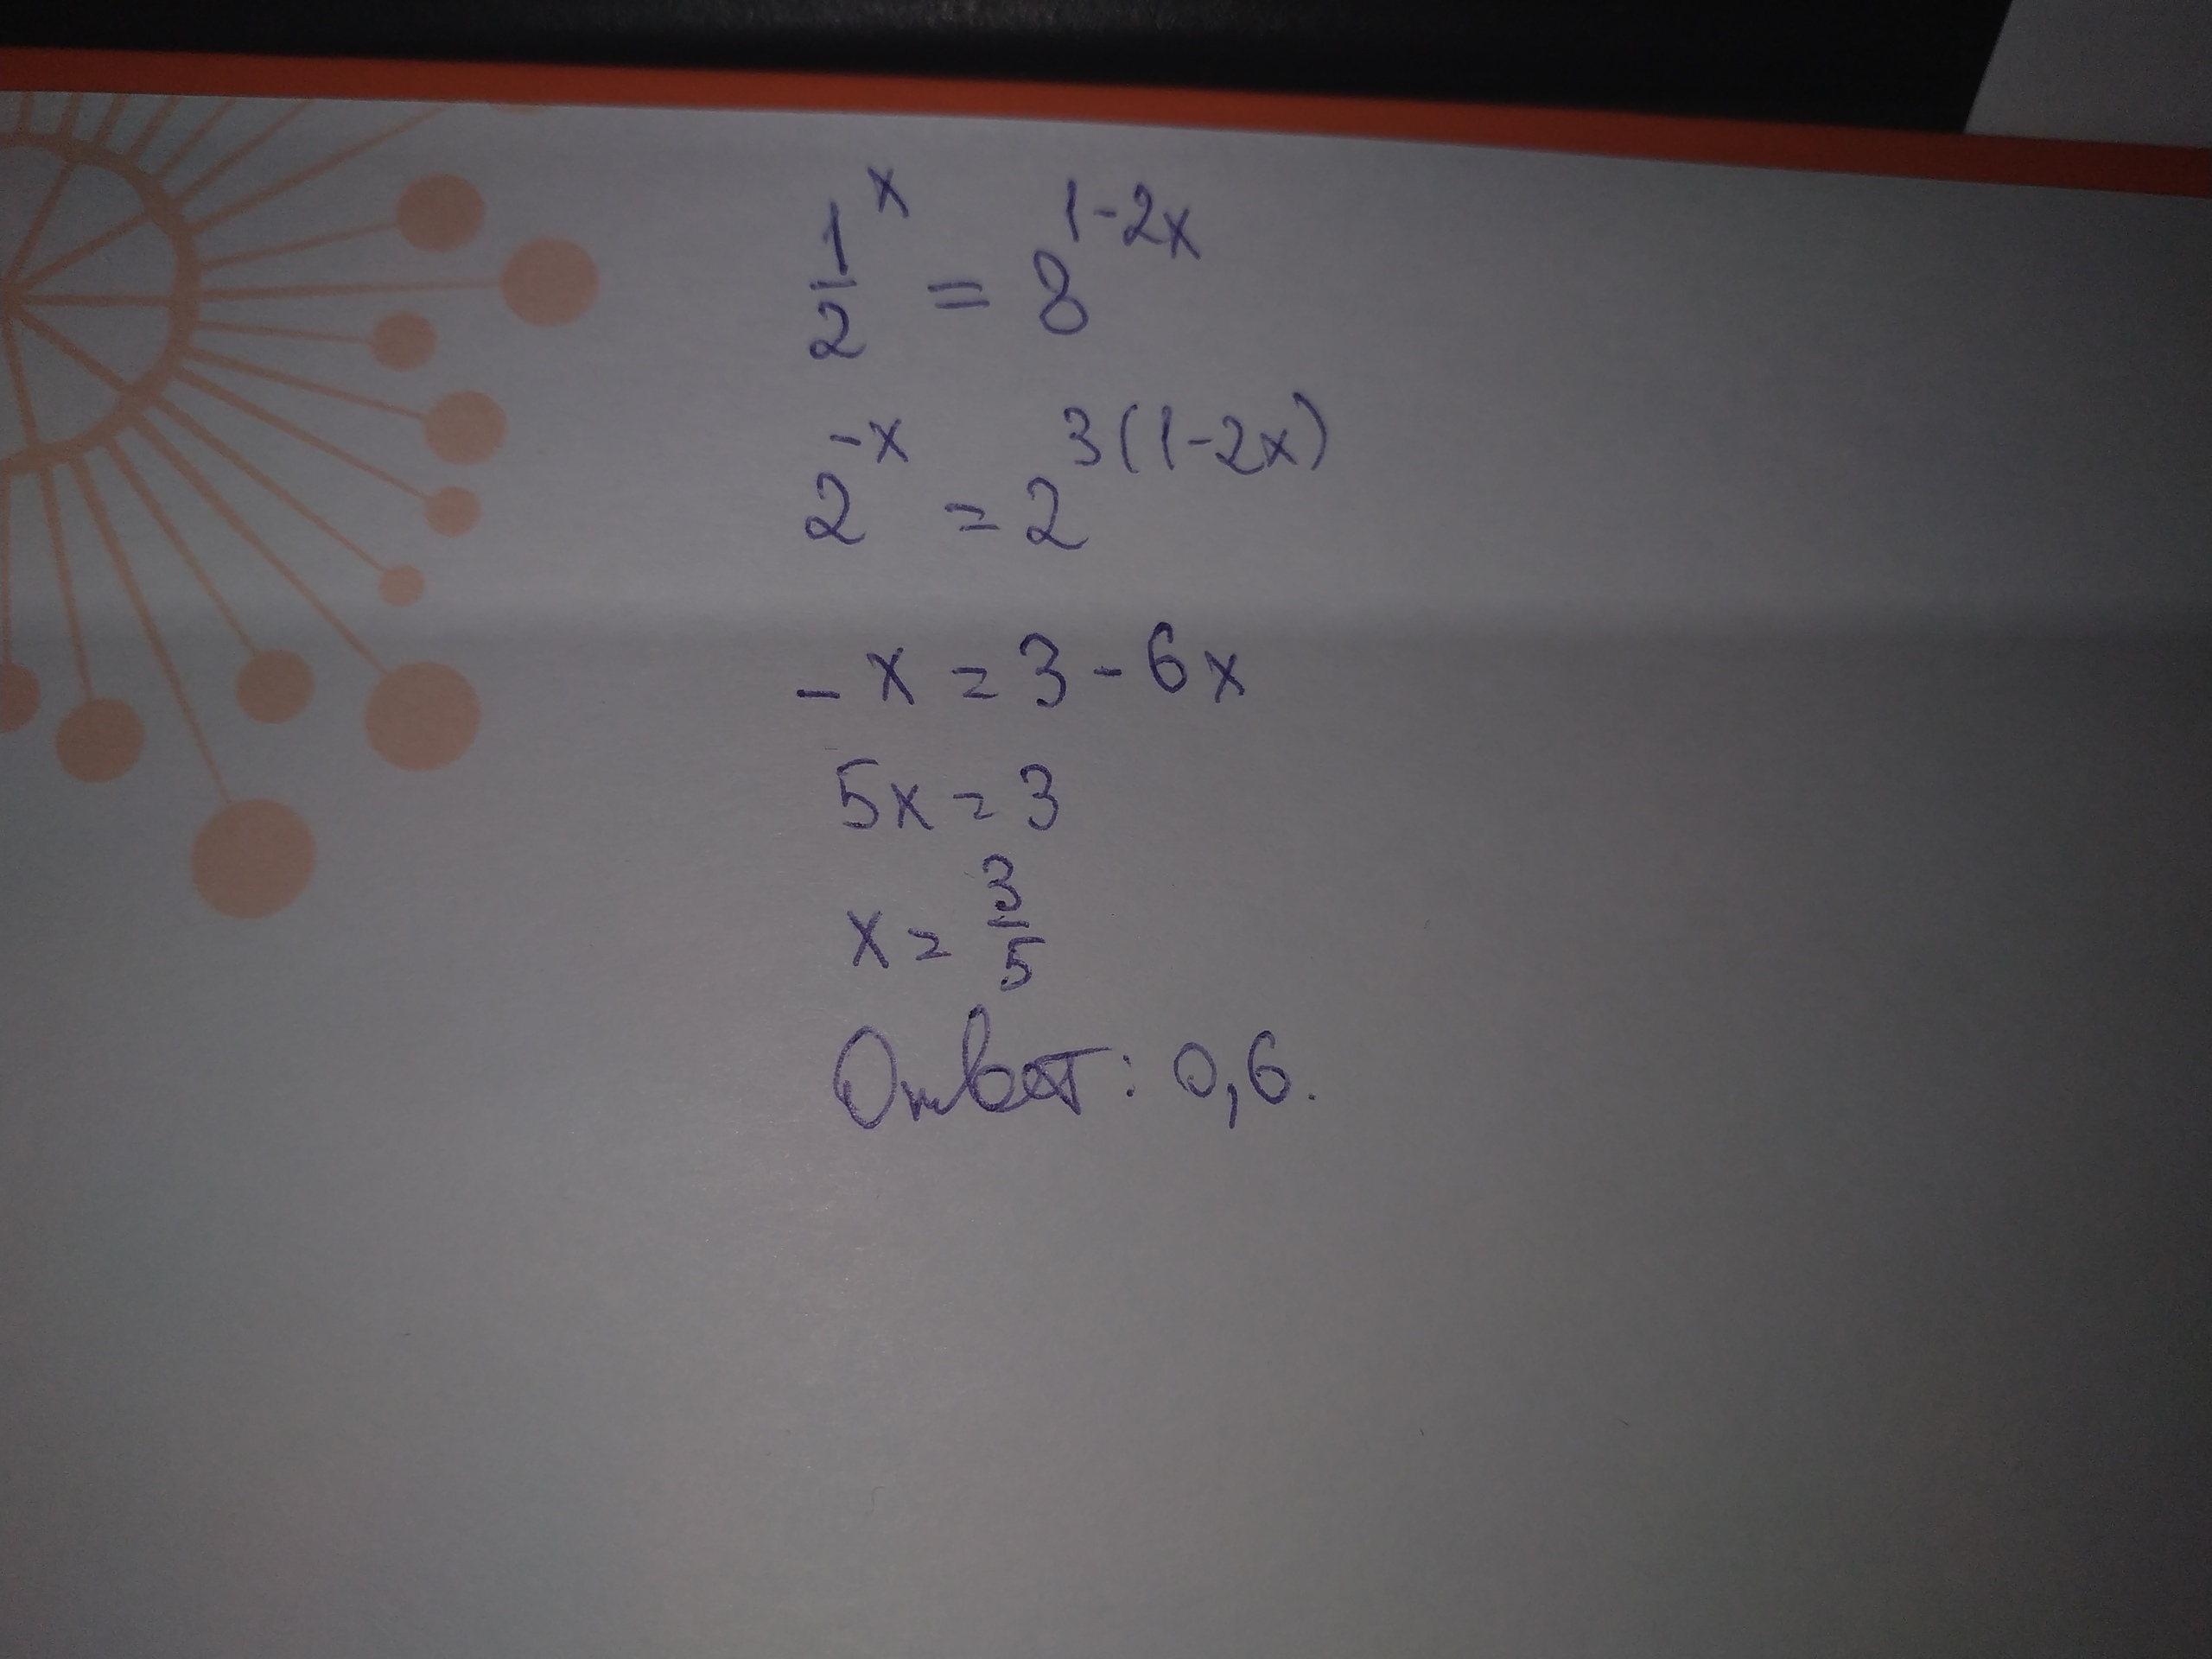 1/2^x = 8^(1-2x)
2^(-x) = 2^(3(1-2x))
-x = 3 - 6x
5x = 3
x = 3/5
Ответ: 0,6.